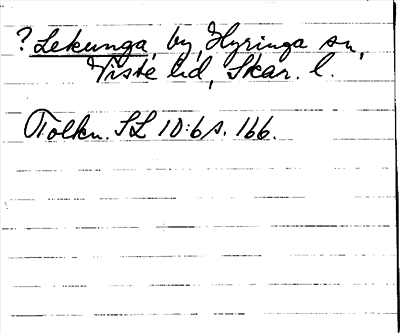 ? Lekunga, by, Hyringa sn,
Viste hd, Skar. l.
Tolkn. SL 10:6 s. 166.